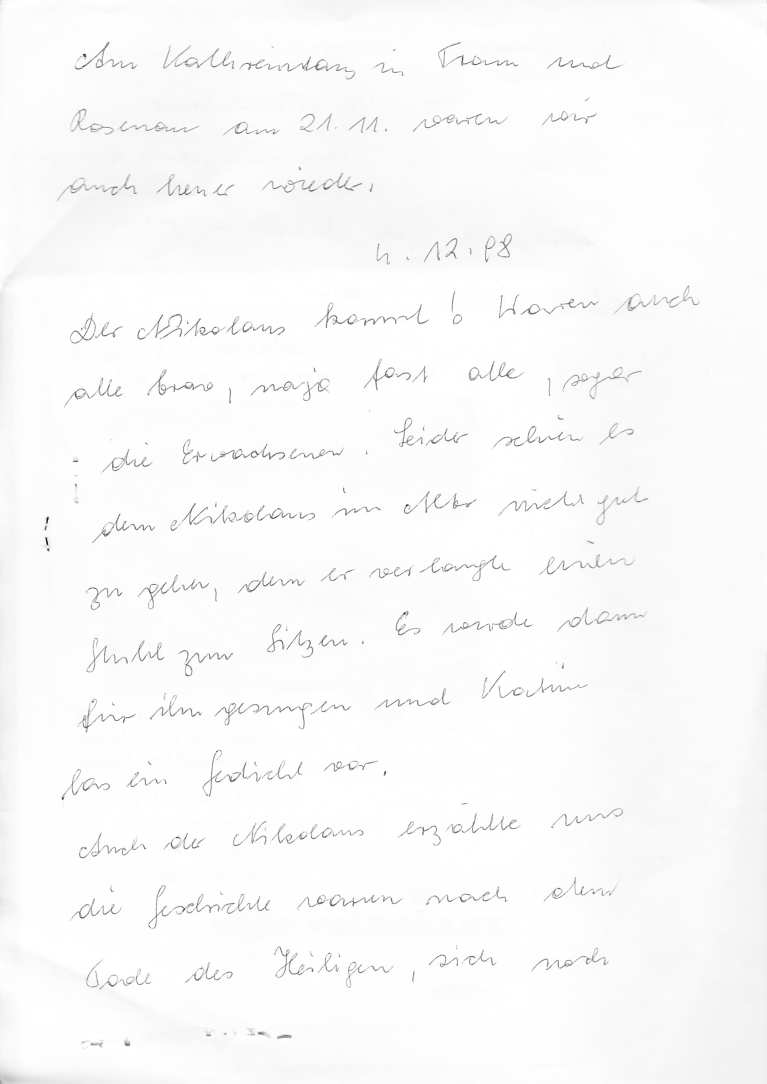 Am Kathreintanz in Traun und
Rosenau am 21.11. waren wir
auch heuer wieder.
4.12.98
Der Nikolaus kommt! Waren auch
alle brav, naja fast alle, sogar
die Erwachsenen. Leider schien es
dem Nikolaus im Alter nicht gut
zu gehen, denn er verlangte einen
Stuhl zum Sitzen. Es wurde dann
für ihn gesungen und Katrin
las ein Gedicht vor.
Auch der Nikolaus erzählte uns
die Geschichte warum nach dem
Tode des Heiligen, sich noch